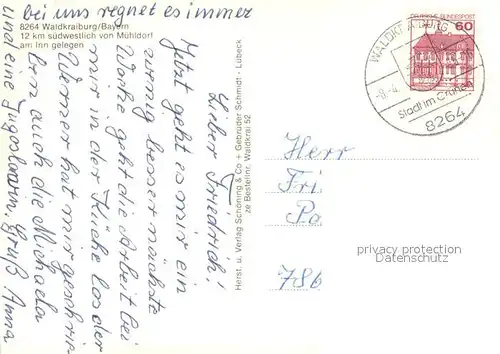 bei uns regnet es immer
8264 Waldkraiburg/Bayern
12 km südwestlich von Mühldorf
am Inn gelegen
Lieber Friedrich!
Jetzt geht es mir ein
wenig besser nächste
Woche geht die Arbeit bei
mir in der Küche los der
Werner hat mir geschrie-
ben auch die Michaela
und eine Jugoslawin. Gruß Anna
Herst. u. Verlag Schöning & Co + Gebrüder Schmidt · Lübeck
ze Bestellnr. Waldkrai 52
DEUTSCHE BUNDESPOST
60
WALDKRAIBURG
Stadt im Grünen
8264
Herr
Fri
Pa
786
privacy protection
Datenschutz